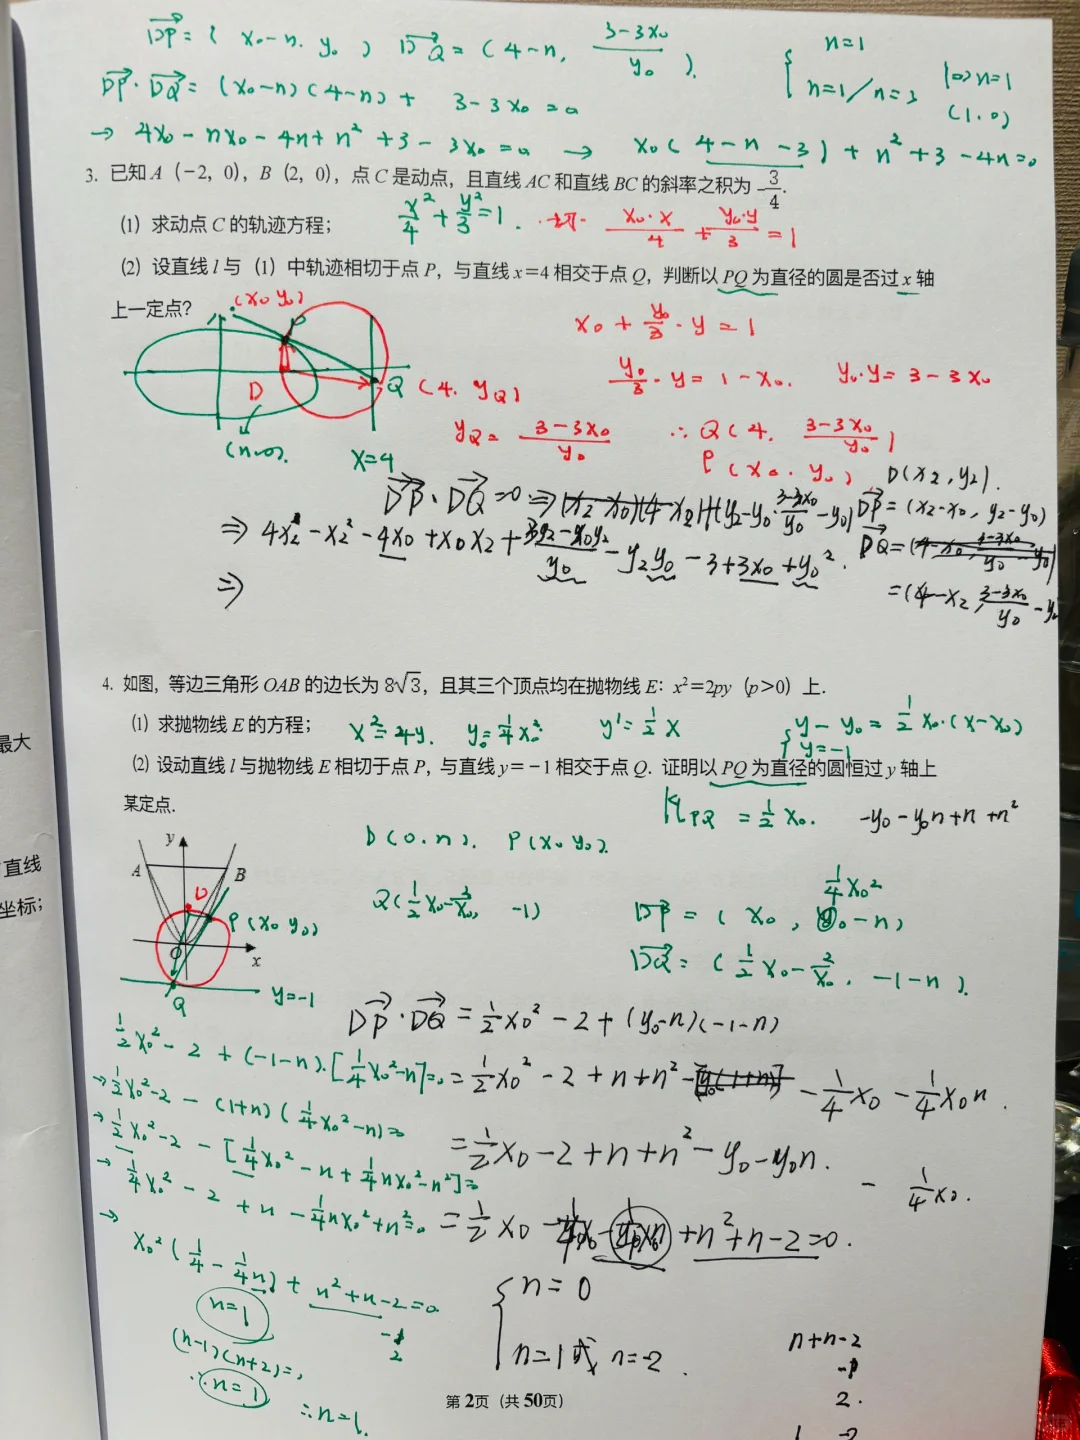 DP = ( x₀-n, y₀ ) DQ = (4-n, (3-3x₀)/y₀ ).
n=1
n=1/n=3
|o> n=1
(1.0)
DP·DQ = (x₀-n)(4-n) + 3-3x₀ = 0
→ 4x₀-nx₀-4n+n²+3-3x₀=0 → x₀(4-n-3)+n²+3-4n=0
3. 已知A(-2,0),B(2,0),点C是动点,且直线AC和直线BC的斜率之积为-3/4.
(1) 求动点C的轨迹方程;
x²/4 + y²/3 = 1. 切 x₀·x/4 + y₀·y/3 = 1
(2) 设直线l与(1)中轨迹相切于点P,与直线x=4相交于点Q,判断以PQ为直径的圆是否过x轴
上一定点?
(x₀ y₀)
P
D
Q (4. yQ)
(n.0).
x=4
x₀ + y₀/3·y = 1
y₀/3·y = 1-x₀. y₀·y = 3-3x₀
yQ = (3-3x₀)/y₀ ∴ Q(4. (3-3x₀)/y₀)
P(x₀. y₀) D(x₂,y₂).
DP·DQ=0 ⇒ DP=(x₂-x₀, y₂-y₀)
⇒ 4x₂-x₂²-4x₀+x₀x₂+ -y₂y₀-3+3x₀+y₀².
DQ=
=(4-x₂, (3-3x₀)/y₀-y₂
⇒
4. 如图,等边三角形OAB的边长为8√3,且其三个顶点均在抛物线E:x²=2py(p>0)上.
(1) 求抛物线E的方程;
x²=4y. y₀=¼x₀² y'=½x
y-y₀=½x₀·(x-x₀)
y=-1
(2) 设动直线l与抛物线E相切于点P,与直线y=-1相交于点Q.证明以PQ为直径的圆恒过y轴上
某定点.
KPQ = ½x₀. -y₀-y₀n+n+n²
D(0.n). P(x₀ y₀).
y
A
B
D
P(x₀ y₀)
O
x
Q
y=-1
Q(½x₀-2/x₀, -1)
¼x₀²
DP = ( x₀, y₀-n)
DQ = (½x₀-2/x₀, -1-n).
DP·DQ = ½x₀²-2+(y₀-n)(-1-n)
½x₀²-2+(-1-n)·[¼x₀²-n]=0
=½x₀²-2+n+n²- -¼x₀-¼x₀n.
→½x₀²-2-(1+n)(¼x₀²-n)=0
→½x₀²-2-[¼x₀²-n+¼nx₀²-n²]=0
=½x₀-2+n+n²-y₀-y₀n.
-¼x₀.
→¼x₀²-2+n-¼nx₀²+n²=0
=½x₀ +n²+n-2=0.
→x₀²(¼-¼n)+n²+n-2=0
-1
2
n=1
(n-1)(n+2)=0
∴n=1
∴n=1.
n=0
n=1或n=-2.
n+n-2
-1
2.
1 -2
第2页(共50页)
最大
直线
坐标;